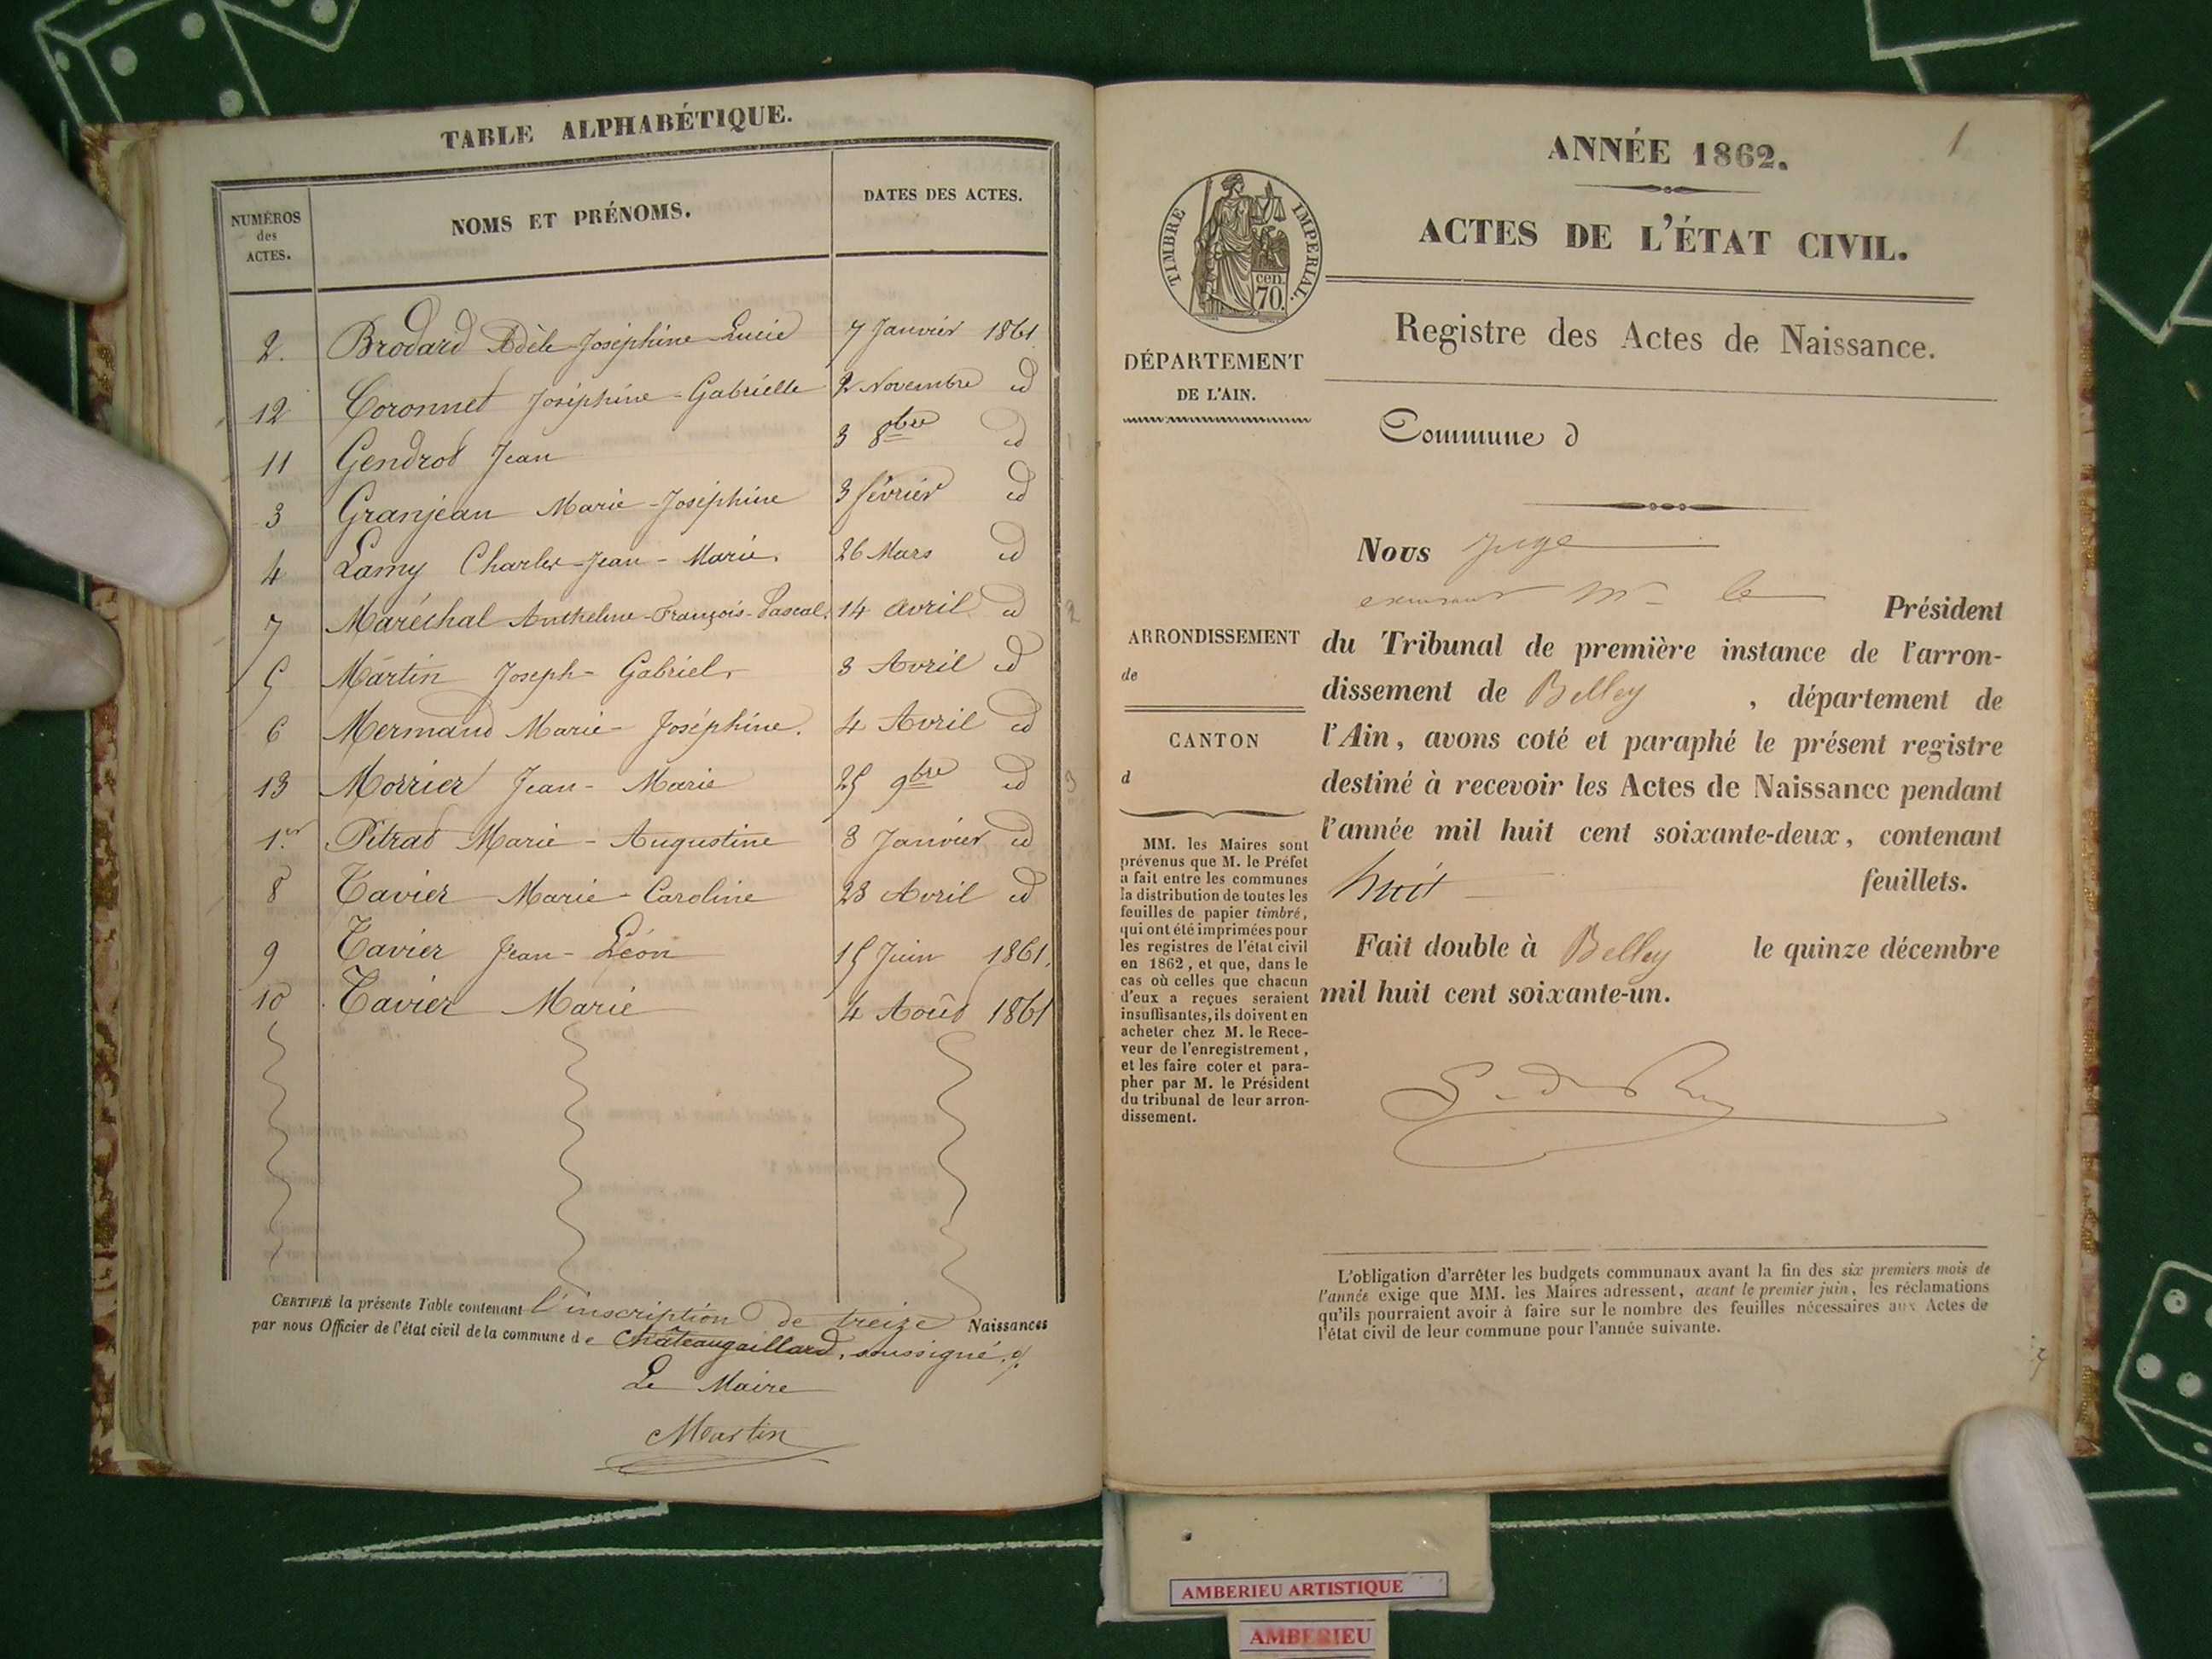 TABLE ALPHABÉTIQUE.
NUMÉROS des ACTES. NOMS ET PRÉNOMS. DATES DES ACTES.
2. Brodard Adèle-Joséphine-Lucie 7 Janvier 1861
12 Coronnet Joséphine-Gabrielle 2 Novembre id
11 Gendrot Jean 3 8bre id
3 Granjean Marie-Joséphine 3 février id
4 Lamy Charles-Jean-Marie. 26 Mars id
7 Maréchal Anthelme-François-Pascal. 14 avril id
5 Martin Joseph-Gabriel. 3 Avril id
6 Mermand Marie-Joséphine. 4 Avril id
13 Morrier Jean-Marie 25 9bre id
1er Pitrat Marie-Augustine 3 Janvier id
8 Tavier Marie-Caroline 23 Avril id
9 Tavier Jean-Léon 15 Juin 1861.
10 Tavier Marie 4 Août 1861
CERTIFIÉ la présente Table contenant l'inscription de treize Naissances
par nous Officier de l'état civil de la commune de Châteaugaillard, soussigné.
Le Maire
Martin
1
ANNÉE 1862.
ACTES DE L'ÉTAT CIVIL.
TIMBRE IMPERIAL.
cen.
70.
Registre des Actes de Naissance.
DÉPARTEMENT
DE L'AIN.
Commune d
ARRONDISSEMENT
de
CANTON
d
MM. les Maires sont
prévenus que M. le Préfet
a fait entre les communes
la distribution de toutes les
feuilles de papier timbré,
qui ont été imprimées pour
les registres de l'état civil
en 1862, et que, dans le
cas où celles que chacun
d'eux a reçues seraient
insuffisantes, ils doivent en
acheter chez M. le Rece-
veur de l'enregistrement,
et les faire coter et para-
pher par M. le Président
du tribunal de leur arron-
dissement.
Nous juge
Mr le Président
du Tribunal de première instance de l'arron-
dissement de Belley, département de
l'Ain, avons coté et paraphé le présent registre
destiné à recevoir les Actes de Naissance pendant
l'année mil huit cent soixante-deux, contenant
huit feuillets.
Fait double à Belley le quinze décembre
mil huit cent soixante-un.
L'obligation d'arrêter les budgets communaux avant la fin des six premiers mois de
l'année exige que MM. les Maires adressent, avant le premier juin, les réclamations
qu'ils pourraient avoir à faire sur le nombre des feuilles nécessaires aux Actes de
l'état civil de leur commune pour l'année suivante.
AMBERIEU ARTISTIQUE
AMBERIEU